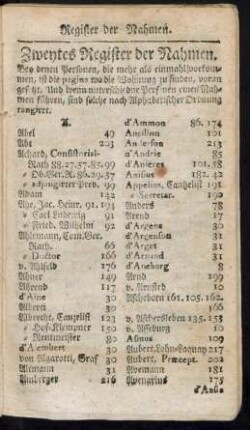 Register der Nahmen.
Zweytes Register der Nahmen.
Bey denen Personen, die mehr als einmahl vorkom-
men, ist die pagina wo die Wohnung zu finden, voran
gesetzt. Und wenn unterschiedne Personen einen Nah-
men führen, sind solche nach Alphabetischer Ordnung
rangirt.
A.
Abel 49
Abt 203
Achard, Consistorial-
Rath 88.27.57.85.99
Ob.Ger.R. 86.29.57
Adam 142
Ahe, Jac. Heinr. 91. 194
Carl Ludewig 91
Fried. Wilhelm 92
Ahlemann, Cam.Ger.
Rath. 66
Doctor 166
v. Ahlfeld 176
Ahner 150
Ahrend 117
d'Aine 30
Alberti 30
Albrecht, Canzelist 123
Hof-Klempner 150
Rentmeister 80
d'Alembert 30
von Algarotti, Graf 30
Alemann 31
Amberger 216
d'Ammon 86. 174
Ancillon 101
Anderson 213
d'Andrie 85
d'Anieres 101. 58
Anisius 182. 42
Appelius, Canzelist 191
Secretair. 190
Anders 87
Arend 17
d'Argens 30
d'Argenson 31
d'Arget 31
d'Arnaud 31
Arnd 169
v. Arnsted 10
Ascheborn 161. 105. 162.
166
v. Aschersleben 135. 153
v. Asseburg 10
Asmus 109
Aubert, Præcept. 202
Avemann 91
Avenarius 175